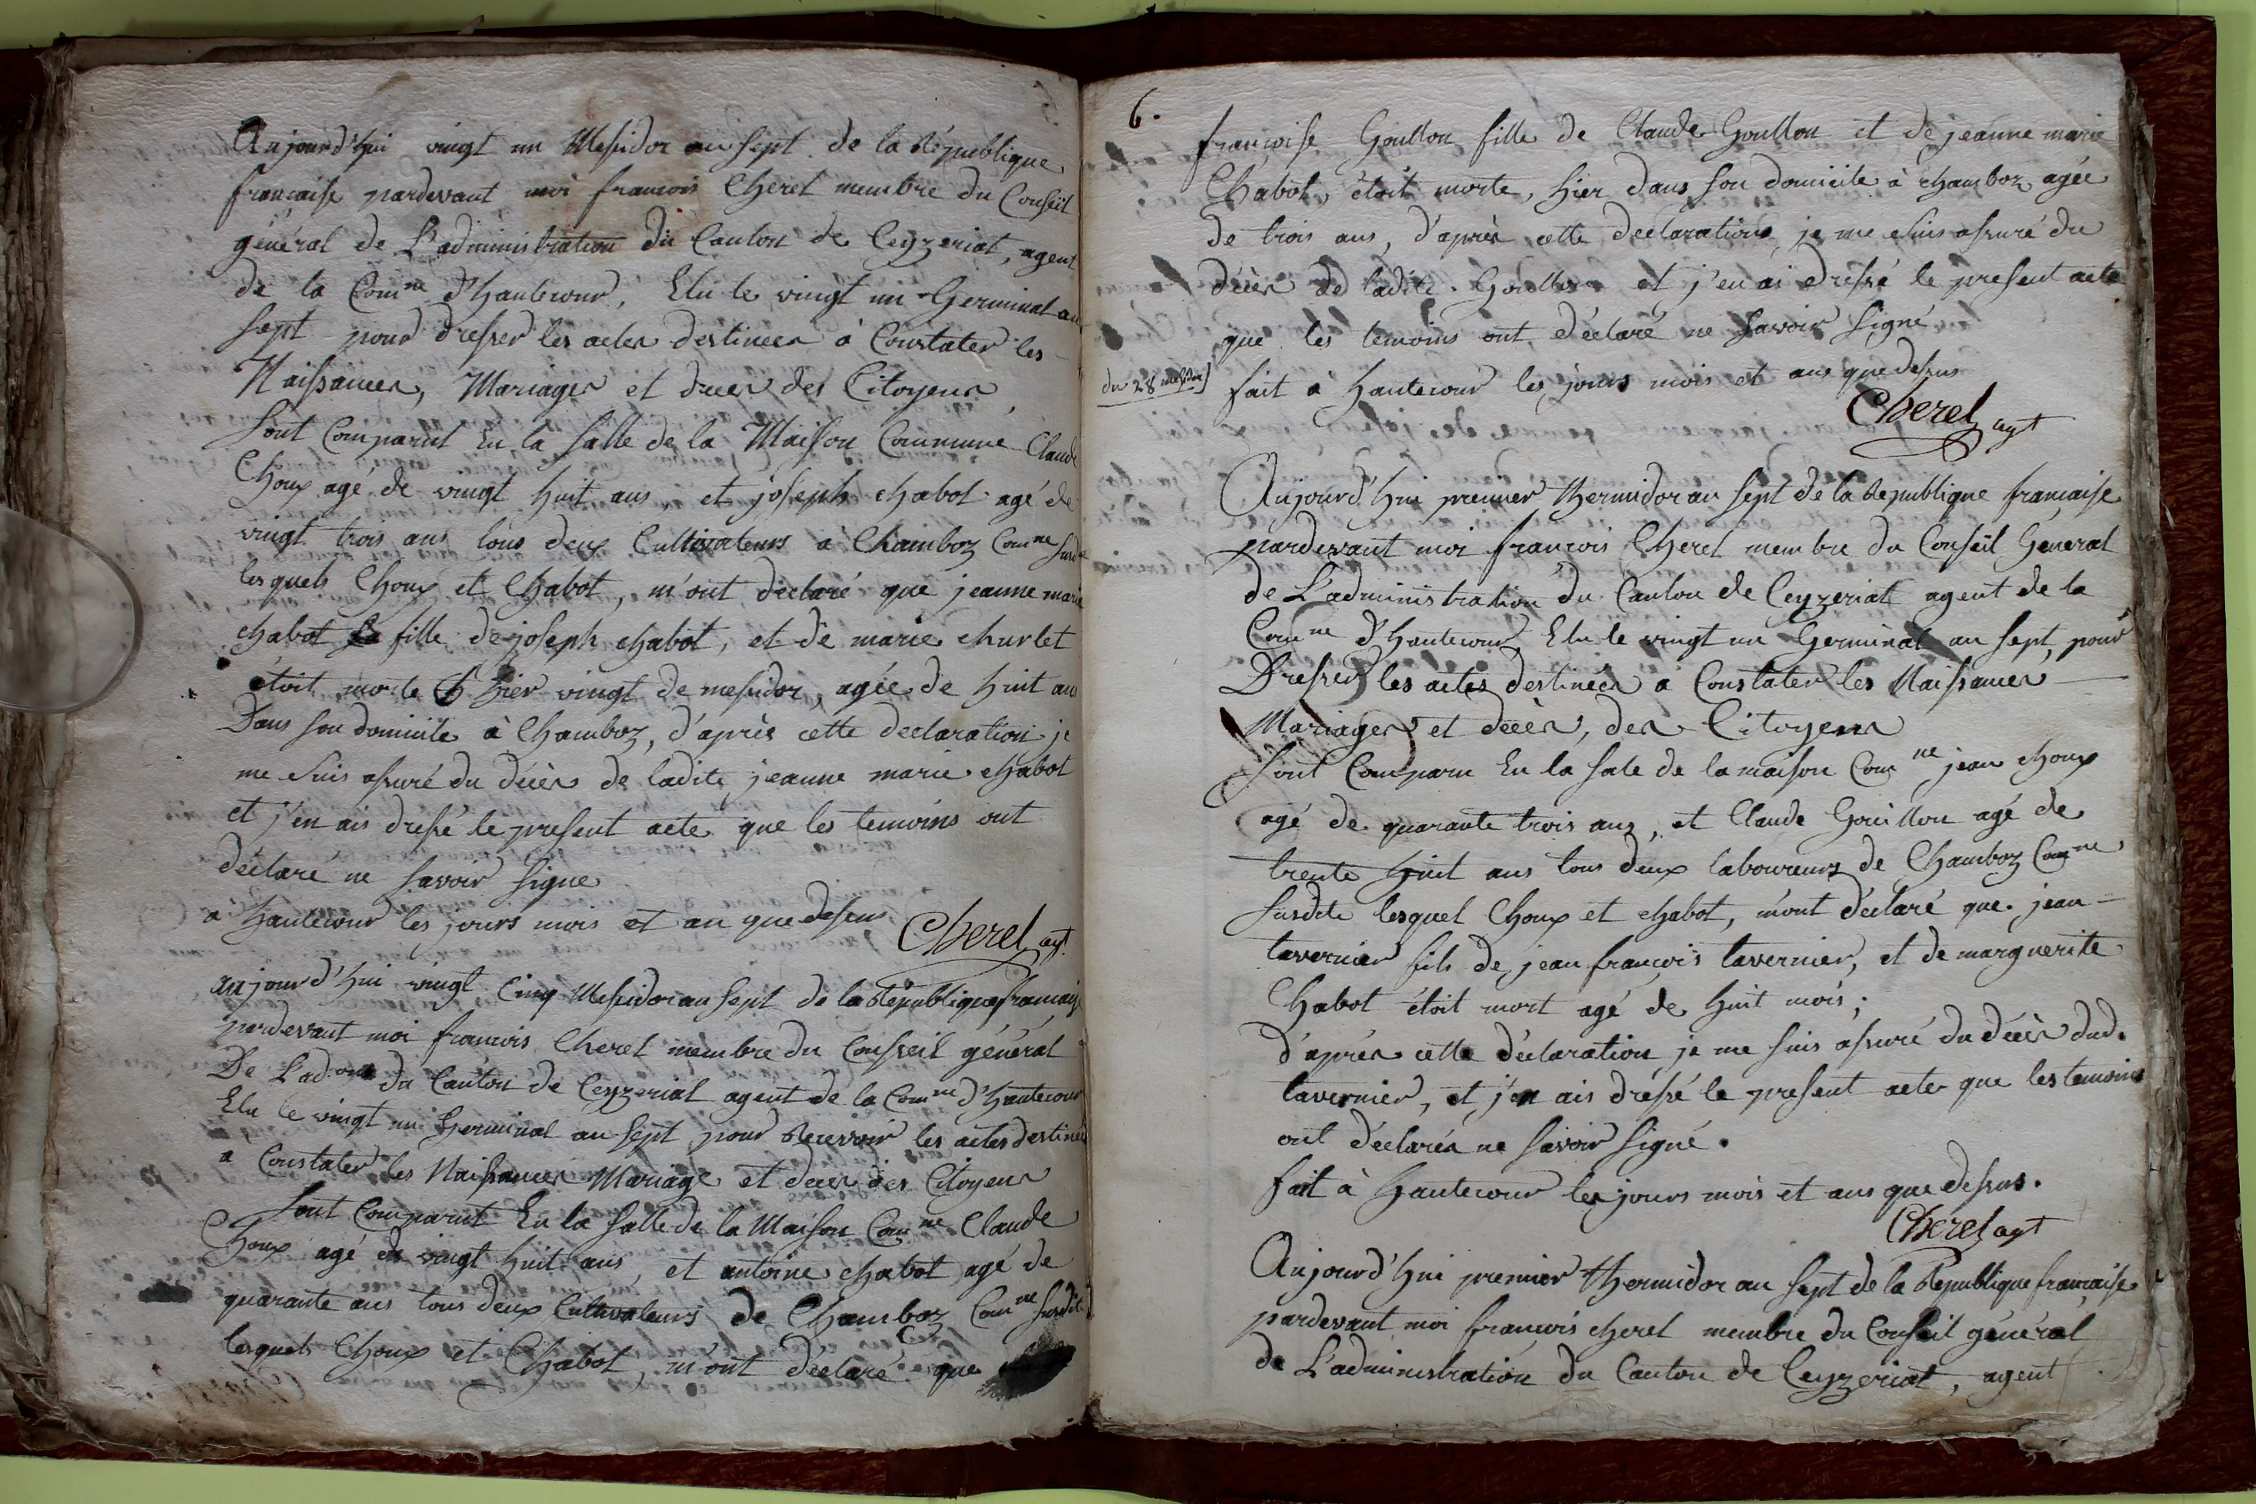 Aujourd'hui vingt un Messidor an sept de la République
francaise pardevant moi francois Cheret membre du Conseil
général de L'administration du Canton de Ceyzeriat, agent
de la Comne d'Hautecour, Elu le vingt un Germinal an
Sept pour dresser les actes destinees à Constater les
Naissances, Mariages et deces des Citoyens
Sont Comparut En la Salle de la Maison Commune Claude
Choux agé de vingt huit ans et joseph chabot agé de
vingt trois ans tous deux Cultivateurs a Chamboz Comne susde
lesquels Choux et Chabot, m'ont déclaré que jeanne marie
chabot fille de joseph chabot, et de marie churlet
étoit morte hier vingt de messidor, agée de huit ans
Dans son domicile à Chamboz, d'après cette declaration je
me suis assuré du décès de ladite jeanne marie chabot
et j'en ais dressé le present acte que les temoins ont
déclaré ne savoir signe
a hautecour les jours mois et an que dessus
Cheret agt
aujourd'hui vingt Cinq Messidor an sept de la République francaise
pardevant moi francois Cheret membre du Conseil général
De L'adon du Canton de Ceyzeriat agent de la Comne d'Hautecour
Elu le vingt un Germinal an sept pour Recevoir les actes destinés
a Constater les Naissances Mariage et deces des Citoyens
Sont Comparut En la Salle de la Maison Comne Claude
Choux agé de vingt huit ans et antoine chabot agé de
quarante ans tous deux Cultivateurs de Chamboz Comne susdite
lesquels Choux et Chabot, m'ont déclaré que
6.
francoise Goullon fille de Claude Goullon et de jeanne marie
Chabot, étoit morte, hier dans son domicile à chamboz agée
de trois ans, d'après cette declaration, je me suis assuré du
décès de ladite Goullon et j'en ai dressé le present acte
que les temoins ont déclaré ne savoir signé
du 28 messidor
fait à hautecour les jours mois et ans que dessus
Cheret agt
Aujourd'hui premier thermidor an sept de la Republique francaise
pardevant moi francois Cheret membre du Conseil Géneral
de L'administration du Canton de Ceyzeriat agent de la
Comne d'hautecour, Elu le vingt un Germinal an sept, pour
Dresser les actes destinées a Constater les Naissances
Mariages et décès, des Citoyens
Sont Comparu En la sale de la maison Comne jean choux
agé de quarante trois ans, et Claude Gouillon agé de
trente huit ans tous deux laboureurs de Chamboz Comne
susdite lesquel Choux et chabot, m'ont déclaré que jean
tavernier fils de jean francois tavernier, et de marguerite
Chabot étoit mort agé de huit mois;
d'après cette déclaration je me suis assuré du décès dud.
tavernier, et j'en ais dressé le present acte que les temoins
ont déclarés ne savoir signé.
fait à hautecour les jours mois et ans que dessus.
Cheret agt
Aujourd'hui premier thermidor an sept de la Republique francaise
pardevant moi francois cheret membre du Conseil général
de L'administration du Canton de Ceyzeriat, agent